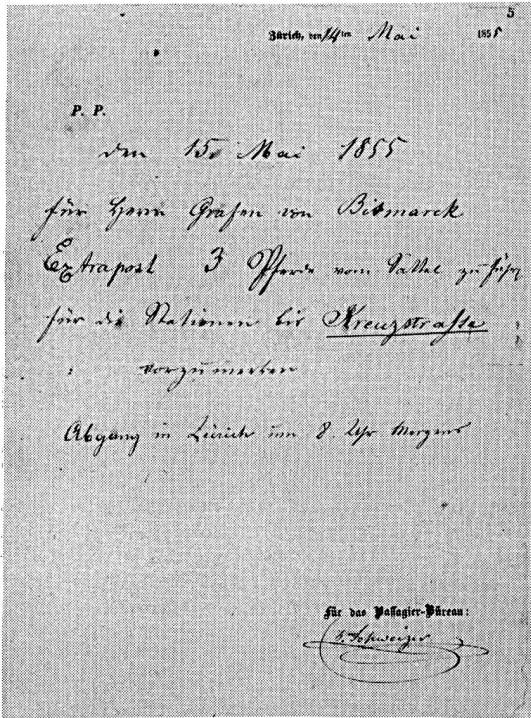 5
Zürich, den 14ten Mai 1855
P. P.
den 15. Mai 1855
für Herrn Grafen von Bismarck
Extrapost 3 Pferde vom Sattel zu führen
für die Stationen bis Kreuzstrasse
vorzumerken
Abgang in Zürich um 8. Uhr Morgens
Für das Passagier-Büreau:
Schweizer